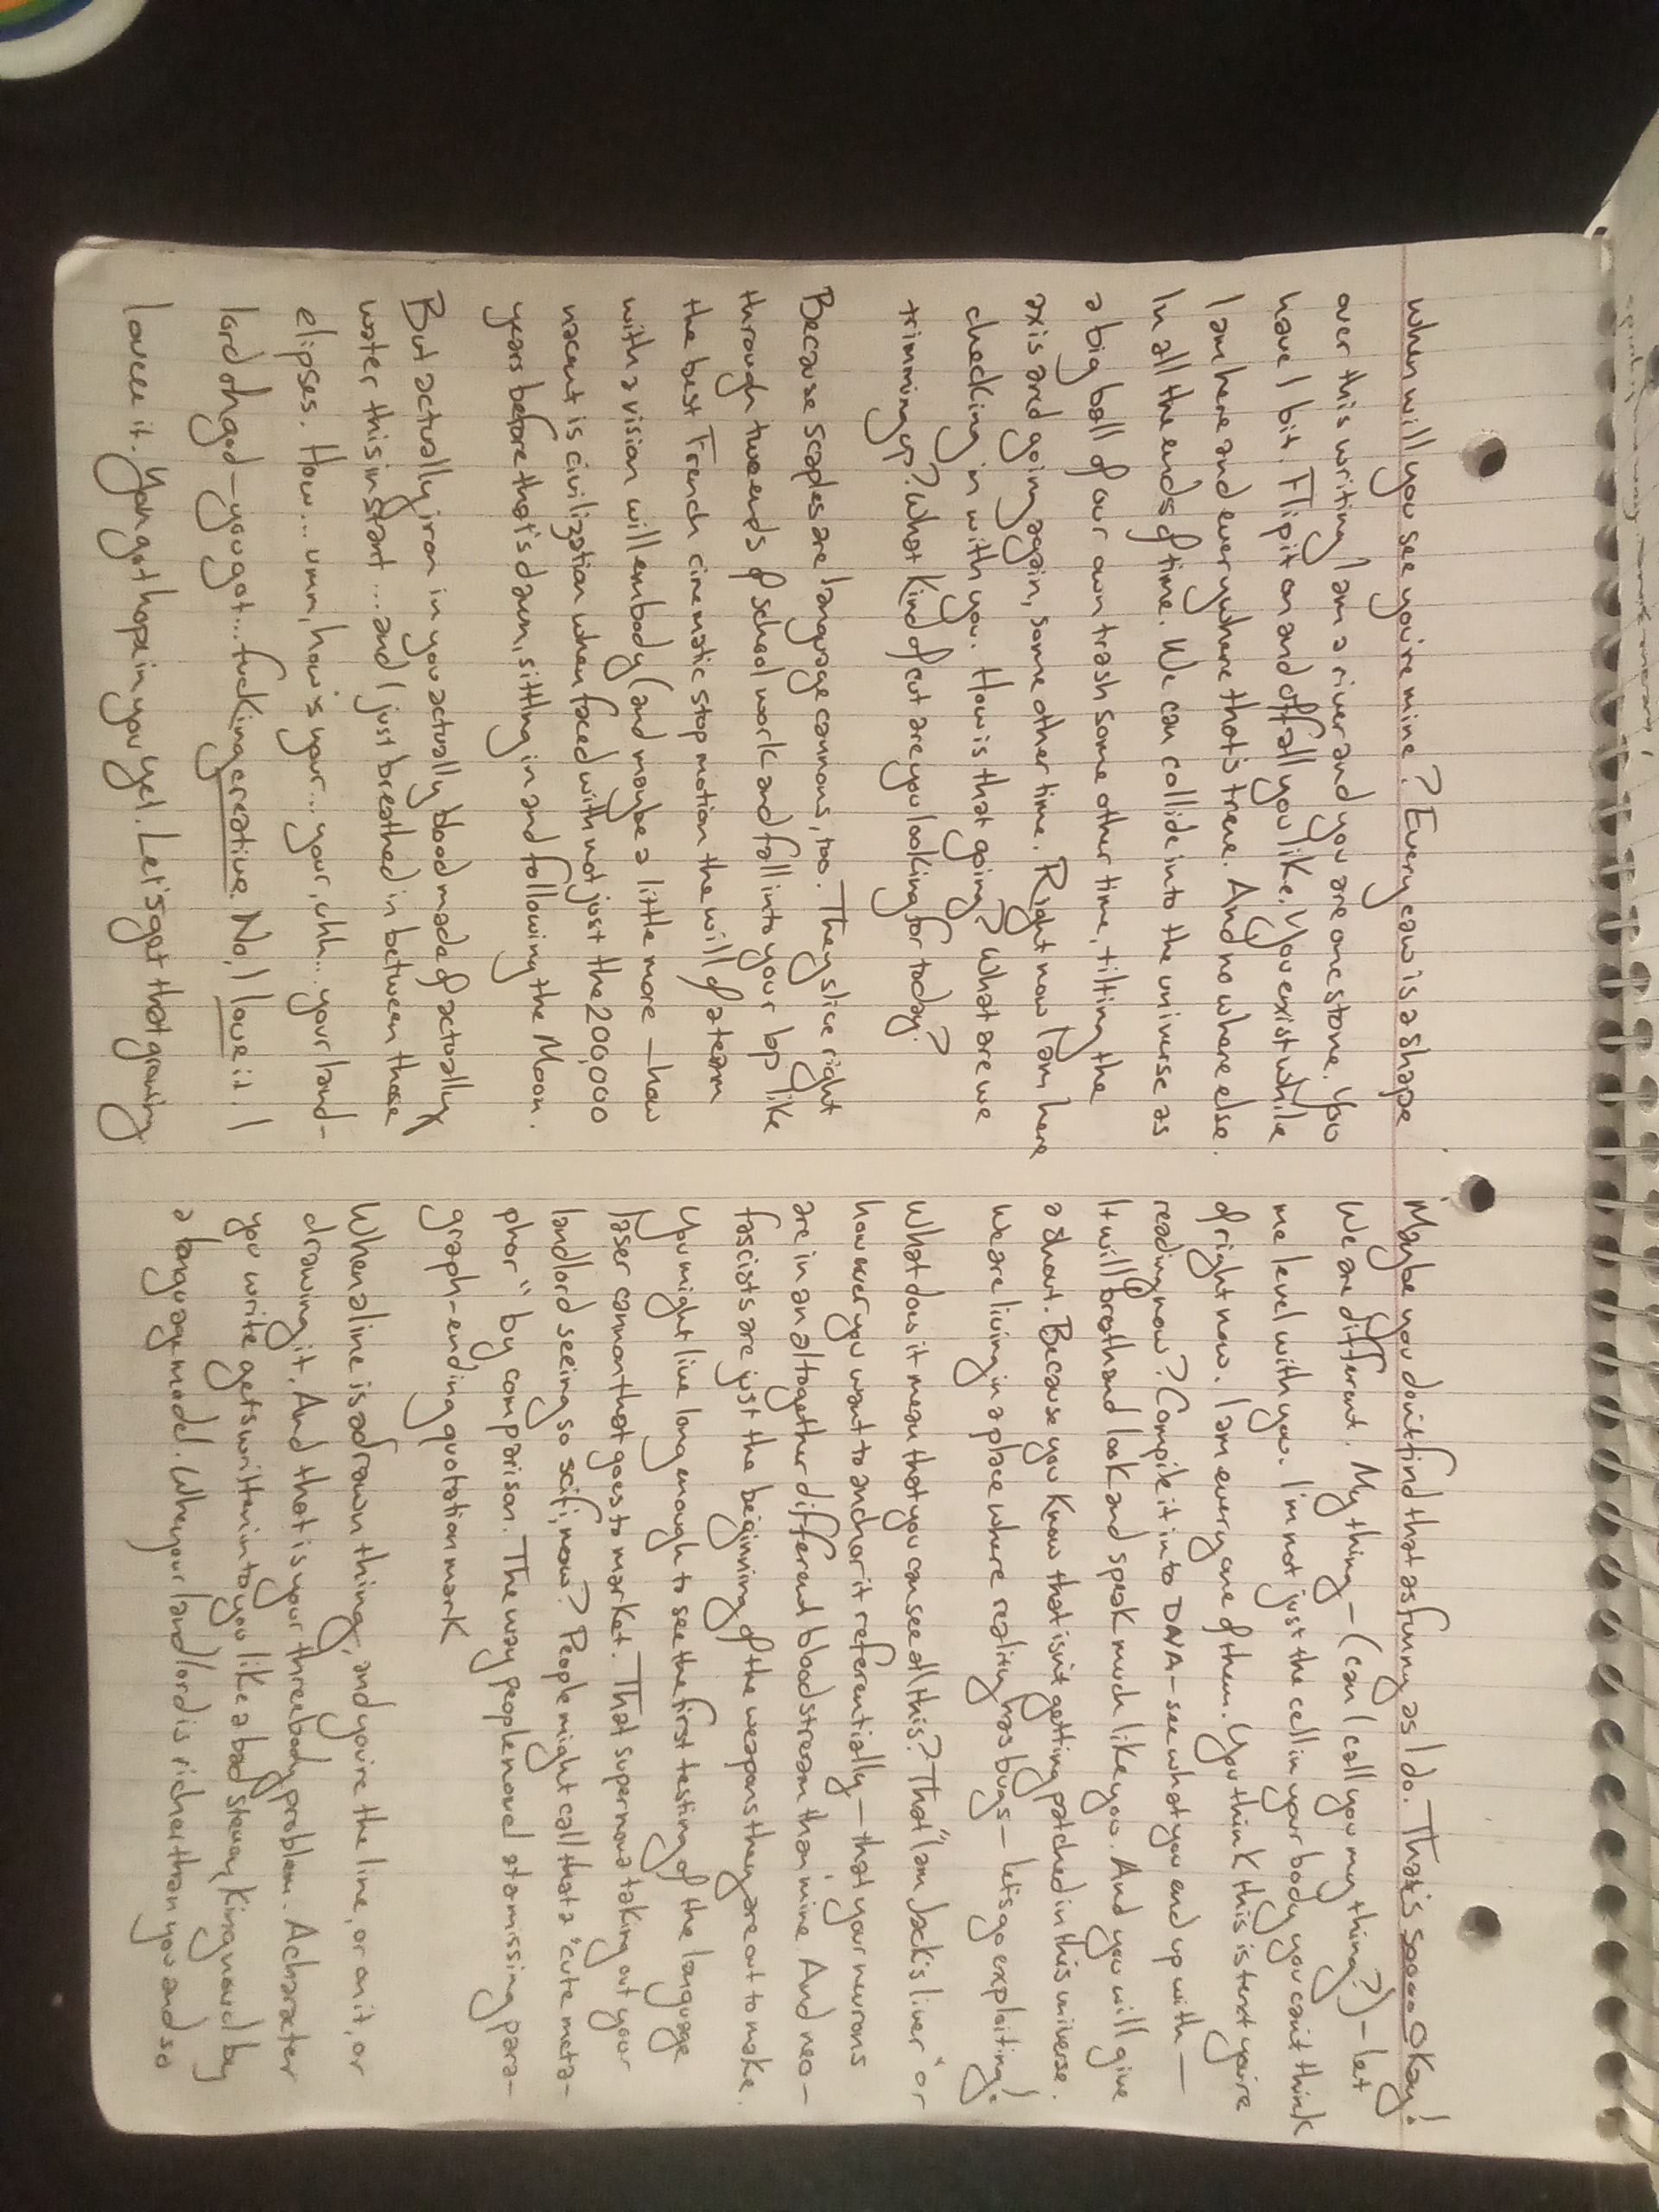 when will you see you're mine? Every caw is a shape
over this writing I am a river and you are one stone. You
have 1 bit. Flip it on and off all you like. You exist while
I am here and everywhere that's true. And no where else.
In all the ends of time. We can collide into the universe as
a big ball of our own trash some other time, tilting the
axis and going again, some other time. Right now I am here
checking in with you. How is that going? What are we
trimming up? What kind of cut are you looking for today?
Because scaples are language cannons, too. They slice right
through two ends of sched work and fall into your bp like
the best French cinematic stop motion the will of a team
with a vision will embody (and maybe a little more — how
nacent is civilization when faced with not just the 200,000
years before that's dawn, sitting in and following the Moon.
But actually iron in you actually blood made of actually
water this instant... and I just breathed in between those
elipses. How... umm, how's your... your, uhh... your land-
lord oh god — you got... fucking creative. No, I love it. I
loveee it. You got hope in you yet. Let's get that growing
Maybe you don't find that as funny as I do. That's soooo okay!
We are different. My thing — (can I call you my thing?) — let
me level with you. I'm not just the cell in your body you can't think
of right now. I am every one of them. You think this is text you're
reading now? Compile it into DNA — see what you end up with —
It will breath and look and speak much like you. And you will give
a shout. Because you know that isn't getting patched in this universe.
We are living in a place where reality has bugs — let's go exploiting!
What does it mean that you can see all this? That "I am Jack's liver" or
however you want to anchor it referentially — that your neurons
are in an altogether different bloodstream than mine. And neo-
fascists are just the beginning of the weapons they are out to make.
You might live long enough to see the first testing of the language
laser cannon that goes to market. That supernova taking out your
landlord seeing so scifi, now? People might call that a "cute meta-
phor" by comparison. The way people novel at a missing para-
graph-ending quotation mark
When a line is a drawn thing, and you're the line, or on it, or
drawing it. And that is your three body problem. A character
you write gets written into you like a bad Steven King novel by
a language model. When your landlord is richer than you and so